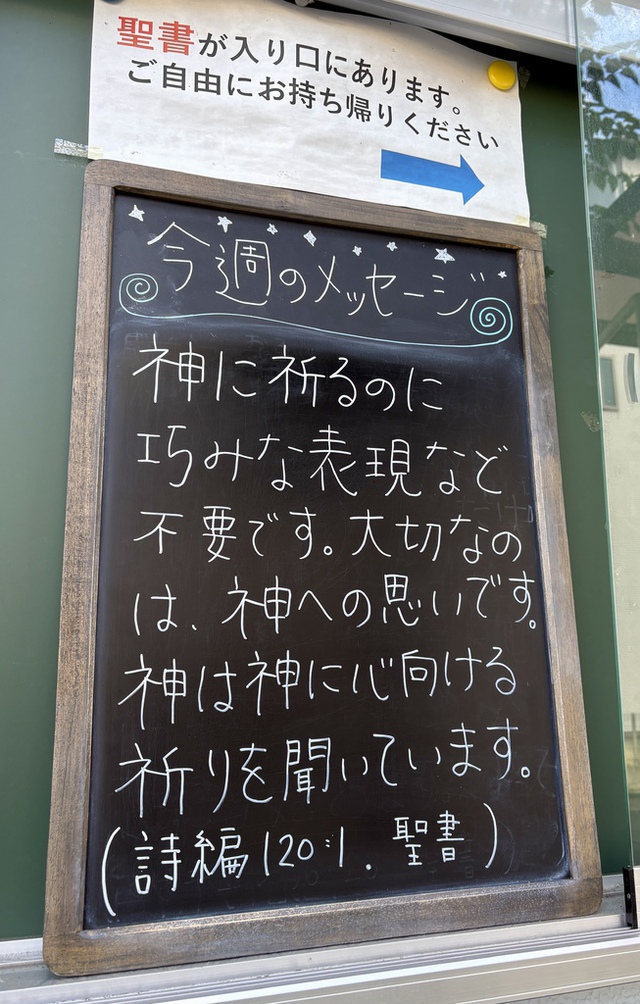 聖書が入り口にあります。
ご自由にお持ち帰りください
今週のメッセージ
神に祈るのに
巧みな表現など
不要です。大切なの
は、神への思いです。
神は神に心向ける
祈りを聞いています。
(詩編120:1. 聖書)